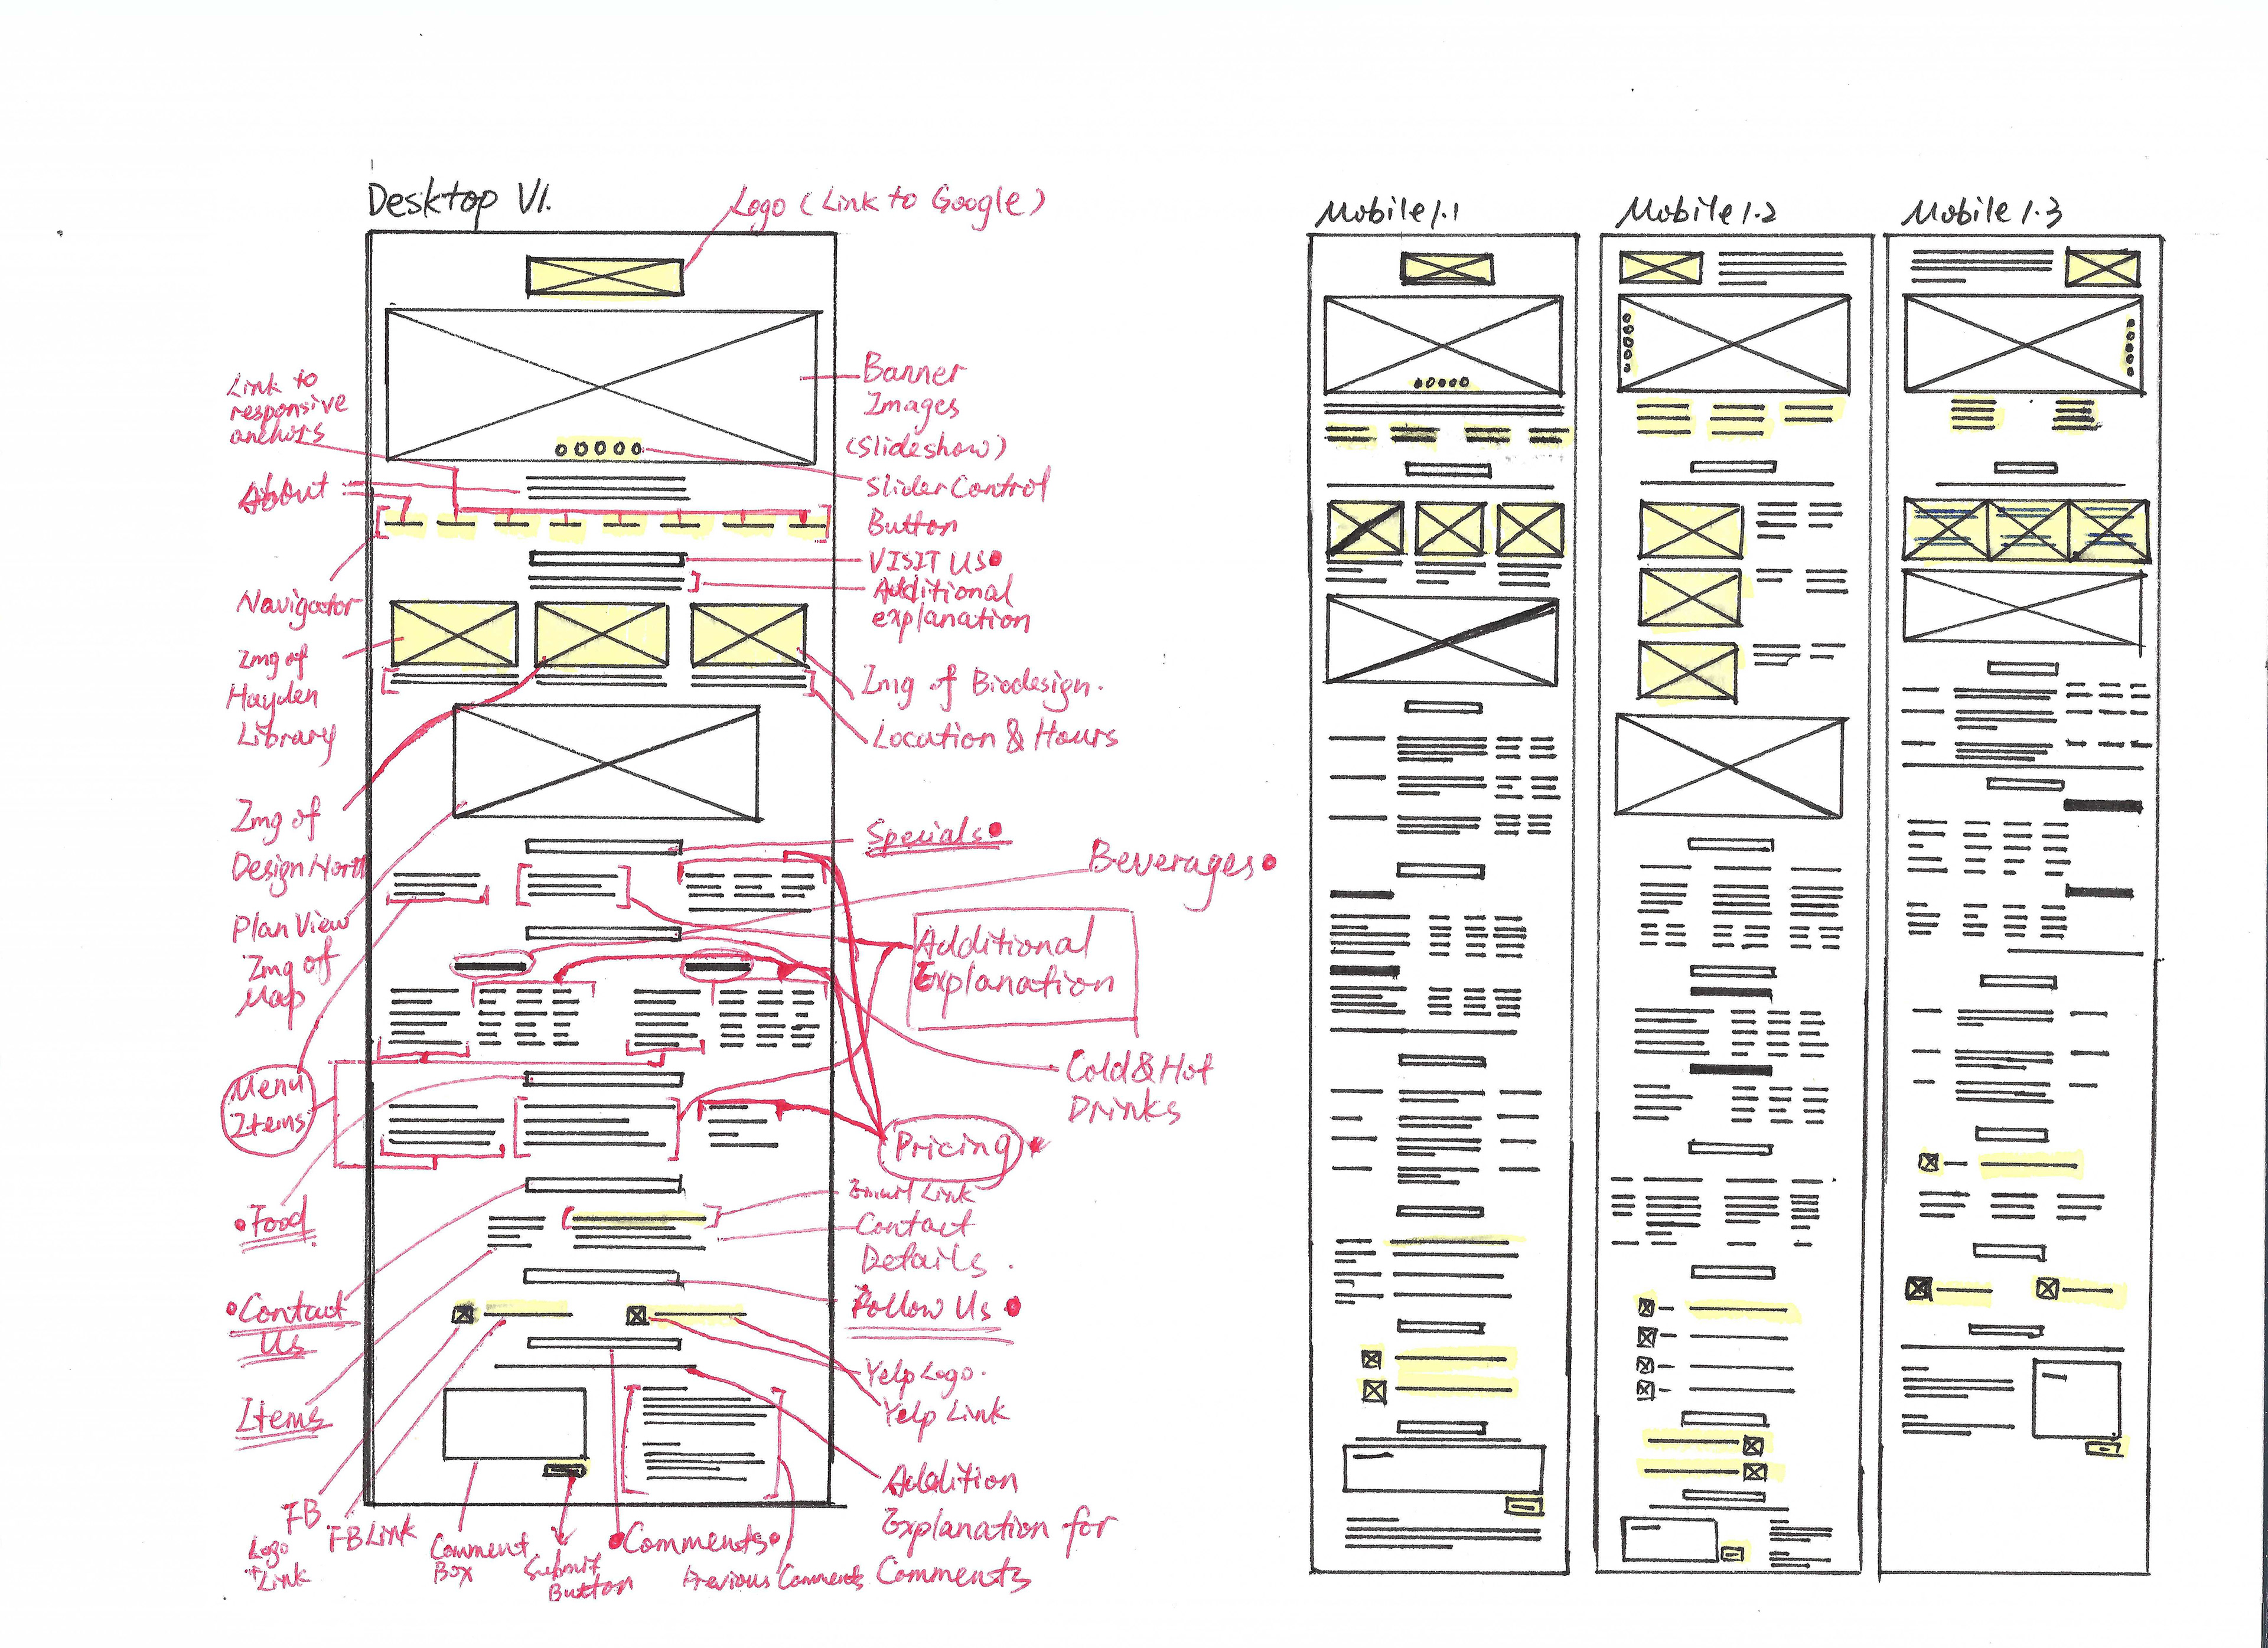 Desktop V1.
Logo (Link to Google)
Link to
responsive
anchors
About
Navigator
Img of
Hayden
Library
Img of
Design North
Plan View
Img of
Map
Menu
Items
Food
Contact
Us
Items
FB
Logo
+Link
FB Link
Comment
Box
Submit
Button
Comments
Previous Comments
Banner
Images
(Slideshow)
Slider Control
Button
VISIT US
Additional
explanation
Img of Biodesign.
Location & Hours
Specials
Beverages
Additional
Explanation
Cold & Hot
Drinks
Pricing
Email Link
Contact
Details.
Follow Us
Yelp Logo.
Yelp Link
Addition
Explanation for
Comments
Mobile 1.1
Mobile 1.2
Mobile 1.3